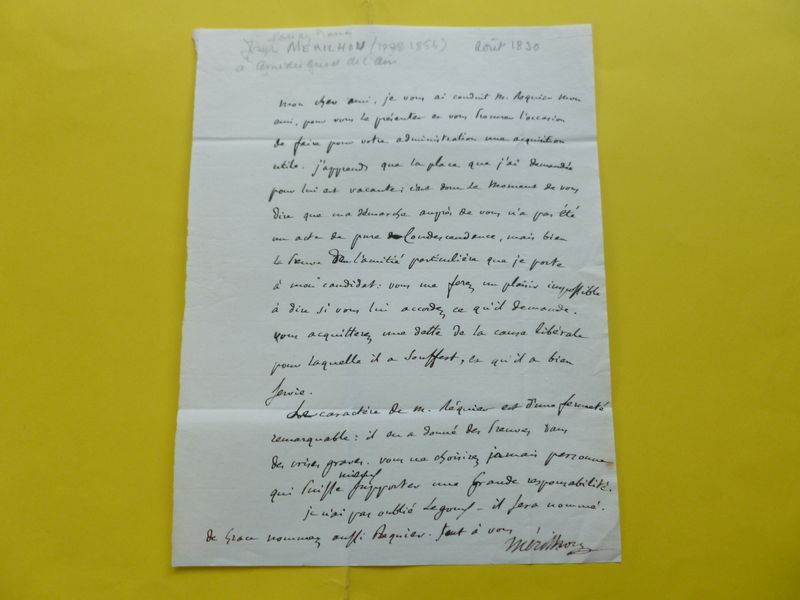 Joseph MÉRILHOU (1788 1856) Août 1830
à
mon cher ami, je vous ai conduit M. Réquier mon
ami, pour vous le présenter et vous fournir l'occasion
de faire pour votre administration une acquisition
utile. j'apprends que la place que j'ai demandée
pour lui est vacante; c'est donc le Moment de vous
dire que ma démarche auprès de vous n'a pas été
un acte de pure Condescendence, mais bien
la preuve de l'amitié particulière que je porte
à mon candidat: vous me ferez un plaisir impossible
à dire si vous lui accordez ce qu'il demande.
vous acquitterez une dette de la cause libérale
pour laquelle il a souffert, et qu'il a bien
servie.
Le caractère de M. Réquier est d'une fermeté
remarquable: il en a donné des preuves dans
des crises graves. vous ne choisirez jamais personne
qui puisse mieux supporter une grande responsabilité.
je n'ai pas oublié - il sera nommé.
de grace nommez aussi Requier. tout à vous
Mérilhou